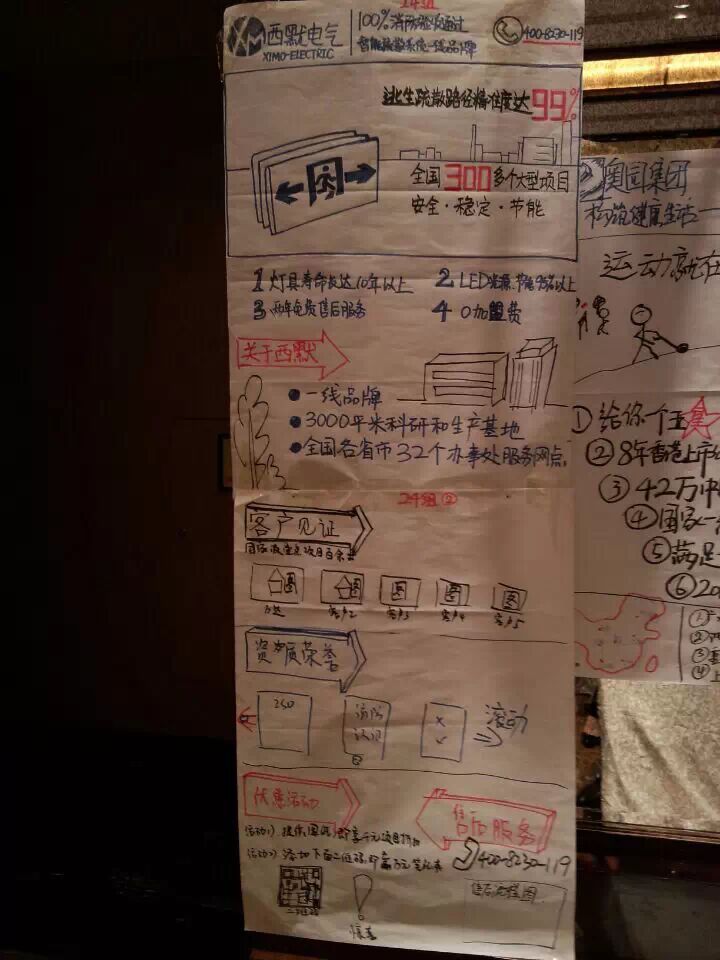 14组
西默电气
XIMO-ELECTRIC
100%消防验收通过
智能疏散系统一线品牌
400-8230-119
逃生疏散路径精准度达99%
全国300多个大型项目
安全·稳定·节能
1 灯具寿命长达10年以上
2 LED光源,节能95%以上
3 两年免费售后服务
4 0加盟费
关于西默
一线品牌
3000平米科研和生产基地
全国各省市32个办事处服务网点
24组②
客户见证
国家
图
图
图
图
图
万达
客户2
客户3
客户4
客户5
资质荣誉
ISO
消防
认证
滚动
优惠活动
售后服务
活动1)提供图纸,即享千元项目折扣
活动2)添加下面二维码,即赢万元
400-8230-119
二维码
惊喜
售后流程图
奥园集团
构筑健康生活
运动就在
①给你个五星
②8年香港上市
③42万
④国家一
⑤满足
⑥20
①
②
③
④上